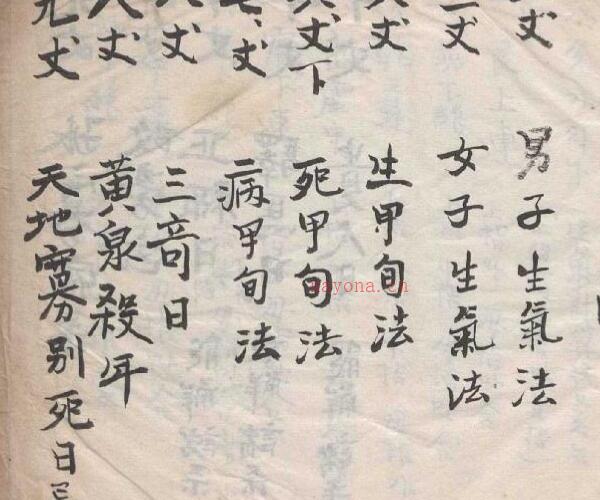 丈
丈
丈
丈下
丈
丈
丈
丈
男子生氣法
女子生氣法
生甲旬法
死甲旬法
病甲旬法
三竒日
黃泉殺年
天地寡別死日
kayona.cn